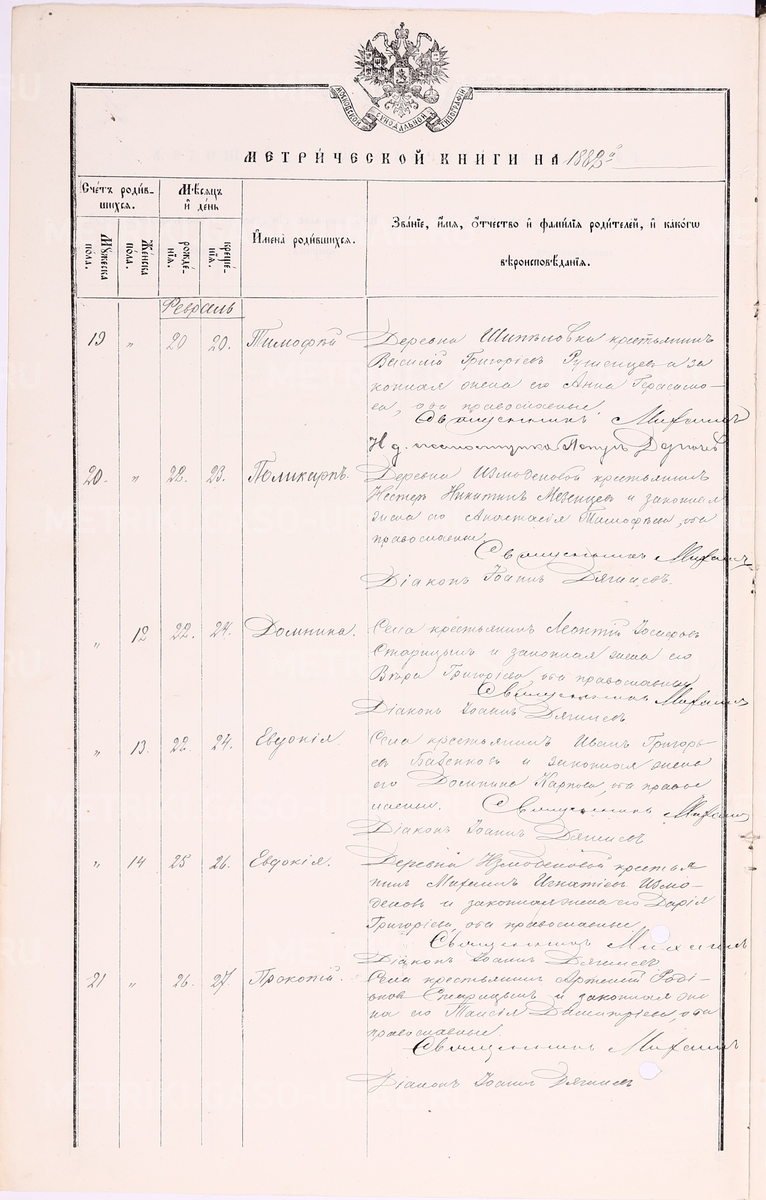 МОСКОВСКОЙ СѴНОДАЛЬНОЙ ТИПОГРАФІИ
МЕТРИЧЕСКОЙ КНИГИ НА 1882й
Счетъ родив-
шихся.
Мѣсяцъ
и день
Имена родившихся.
Званіе, имя, отчество и фамилія родителей, и какогѡ
вѣроисповѣданія.
Мꙋжеска
пола.
Женска
пола.
рожде-
нія.
креще-
нія.
Февраль
19 „ 20 20. Тимофѣй Деревни Шипѣловка крестьянинъ
Василій Григоріевъ и за
конная жена его Анна Герасимо-
ва, оба православные
Священникъ Михаилъ
И д. псаломщика Петръ
20. „ 22. 23. Поликарпъ. Деревни Измоденовой крестьянинъ
Нестер Никитинъ Мезенцевъ и законная
жена его Анастасія Тимофѣева, оба
православные.
Священникъ Михаилъ
Діаконъ Іоаннъ Дягилевъ.
„ 12 22. 24. Домнина. Села крестьянинъ Леонтій Іосифовъ
Старицынъ и законная жена его
Вѣра Григоріева, оба православные
Священникъ Михаилъ
Діаконъ Іоаннъ Дягилевъ
„ 13. 22. 24. Евдокія. Села крестьянинъ Иванъ Григорь-
евъ и законная жена
его Домнина Карпова, оба правос
лавные. Священникъ Михаилъ
Діаконъ Іоаннъ Дягилевъ
„ 14 25 26. Евдокія. Деревни Измоденовой крестья
нинъ Михаилъ Игнатіевъ Измо-
деновъ и законная жена его Дарія
Григоріева, оба православные
Священникъ Михаилъ
Діаконъ Іоаннъ Дягилевъ
21 „ 26. 27 Прокопій. Села крестьянинъ Артемій Роді-
оновъ Старицынъ и законная же
на его Таисія Димитріева, оба
православные.
Священникъ Михаилъ
Діаконъ Іоаннъ Дягилевъ